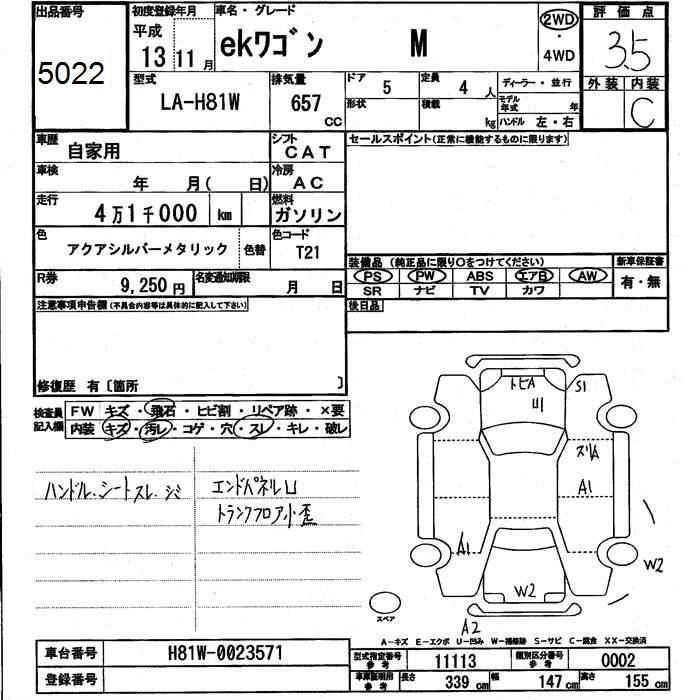 出品番号
5022
初度登録年月
平成
13 11月
車名・グレード
ekワゴン M
2WD
・
4WD
評価点
3.5
外装 内装
C
型式
LA-H81W
排気量
657
CC
ドア
5
定員
4 人
ディーラー・並行
形状
積載
kg
モデル年式
年
ハンドル 左・右
車歴
自家用
シフト
CAT
セールスポイント(正常に機能するものに限ります)
車検
年 月( 日)
冷房
AC
走行
4万1千000 km
燃料
ガソリン
色
アクアシルバーメタリック
色替
色コード
T21
装備品 (純正品に限り○をつけてください)
新車保証書
PS PW ABS エアB AW
有・無
SR ナビ TV カワ
R券
9,250 円
名変通知期限
月 日
後日品
注意事項申告欄(不具合内容等は具体的に記入して下さい)
修復歴 有〔箇所 〕
検査員記入欄
FW キズ・飛石・ヒビ割・リペア跡・×要
内装 キズ・汚レ・コゲ・穴・スレ・キレ・破レ
ハンドル.シートスレ.シミ
エンドパネルU
トランクフロア小歪
トビA
S1
U1
ズリA
A1
A1
W2
W2
A2
スペア
A-キズ E-エクボ U-凹み W-補修跡 S-サビ C-腐食 XX-交換済
車台番号
H81W-0023571
型式指定番号
参考
11113
類別区分番号
参考
0002
登録番号
車庫証明用
参考
長さ
339 cm
幅
147 cm
高さ
155 cm